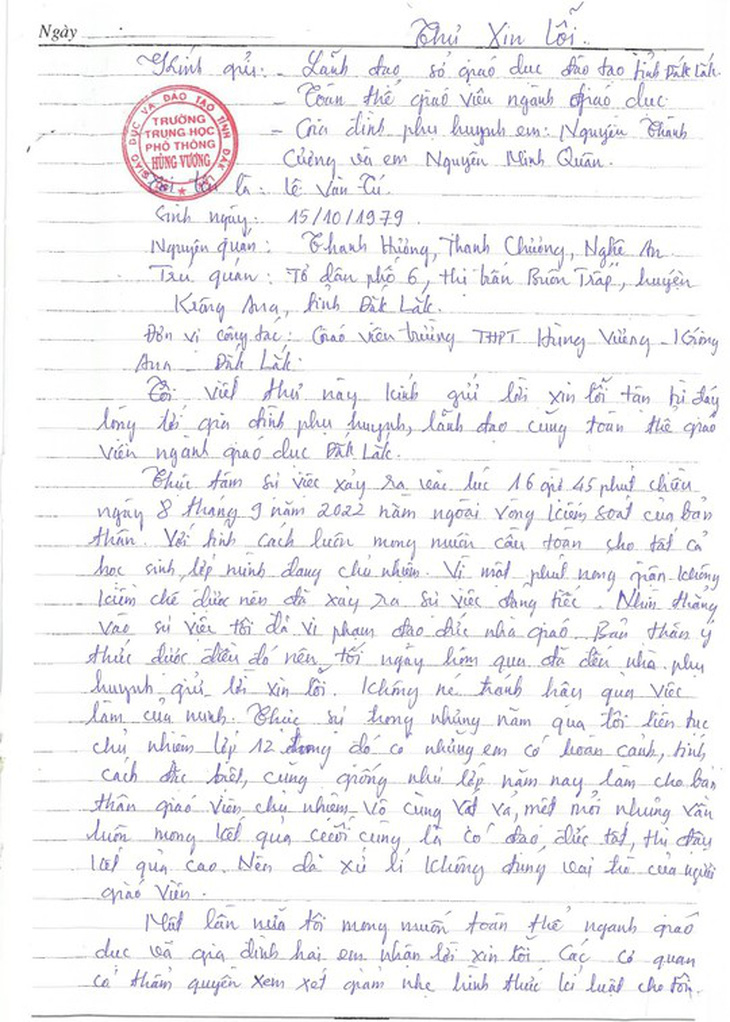 Ngày
Thư Xin Lỗi.
Kính gửi: - Lãnh đạo sở giáo dục đào tạo tỉnh Đắk Lắk.
- Toàn thể giáo viên ngành giáo dục
- Gia đình phụ huynh em: Nguyễn Thành
Cường và em Nguyễn Minh Quân.
SỞ GIÁO DỤC VÀ ĐÀO TẠO TỈNH ĐẮK LẮK
TRƯỜNG
TRUNG HỌC
PHỔ THÔNG
HÙNG VƯƠNG
Tôi tên là: Lê Văn Tú.
Sinh ngày: 15/10/1979.
Nguyên quán: Thanh Hương, Thanh Chương, Nghệ An
Trú quán: Tổ dân phố 6, thị trấn Buôn Trấp, huyện
Krông Ana, tỉnh Đắk Lắk.
Đơn vị công tác: Giáo viên trường THPT Hùng Vương - Krông
Ana - Đắk Lắk.
Tôi viết thư này kính gửi lời xin lỗi tận từ đáy
lòng tới gia đình phụ huynh, lãnh đạo cùng toàn thể giáo
viên ngành giáo dục Đắk Lắk.
Thực tâm sự việc xảy ra vào lúc 16 giờ 45 phút chiều
ngày 8 tháng 9 năm 2022 nằm ngoài vòng kiểm soát của bản
thân. Với tính cách luôn mong muốn cầu toàn cho tất cả
học sinh lớp mình đang chủ nhiệm. Vì một phút nóng giận không
kiềm chế được nên đã xảy ra sự việc đáng tiếc. Nhìn thẳng
vào sự việc tôi đã vi phạm đạo đức nhà giáo. Bản thân ý
thức được điều đó nên tối ngày hôm qua đã đến nhà phụ
huynh gửi lời xin lỗi. Không né tránh hậu quả việc
làm của mình. Thực sự trong những năm qua tôi liên tục
chủ nhiệm lớp 12 trong đó có những em có hoàn cảnh, tính
cách đặc biệt, cũng giống như lớp năm nay làm cho bản
thân giáo viên chủ nhiệm vô cùng vất vả, mệt mỏi nhưng vẫn
luôn mong kết quả cuối cùng là có đạo đức tốt, thi đậy
kết quả cao. Nên đã xử lí không đúng vai trò của người
giáo viên.
Một lần nữa tôi mong muốn toàn thể ngành giáo
dục và gia đình hai em nhận lời xin lỗi. Các cơ quan
có thẩm quyền xem xét giảm nhẹ hình thức kỉ luật cho tôi.